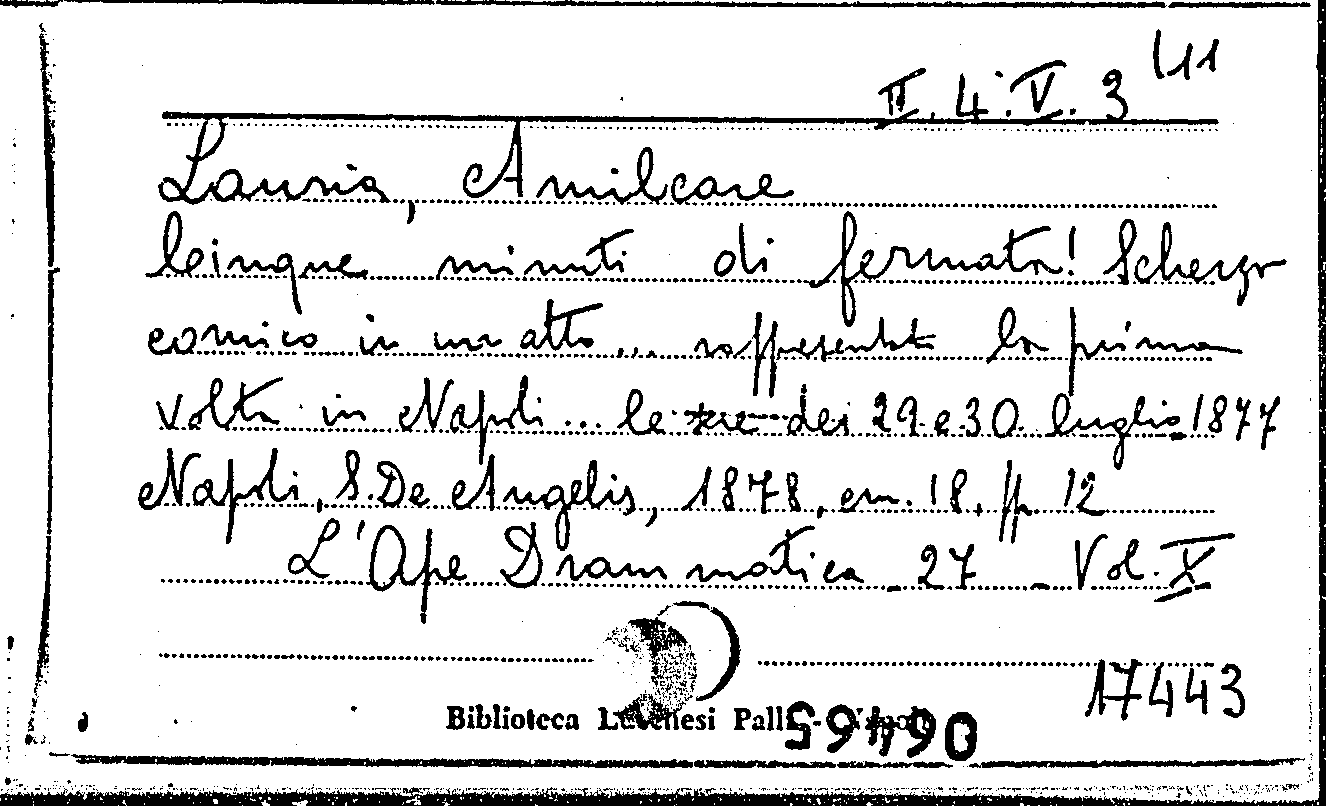 II. 4. V. 3 (11
Lauria, Amilcare
Cinque minuti di fermata! Scherzo
comico in un atto... rappresentato la prima
volta in Napoli... le sere dei 29 e 30 luglio 1877
Napoli, S. De Angelis, 1878, em. 18, pp. 12
L'Ape Drammatica 27 - Vol. X
17443
Biblioteca Lucchesi Palli - Napoli
06465